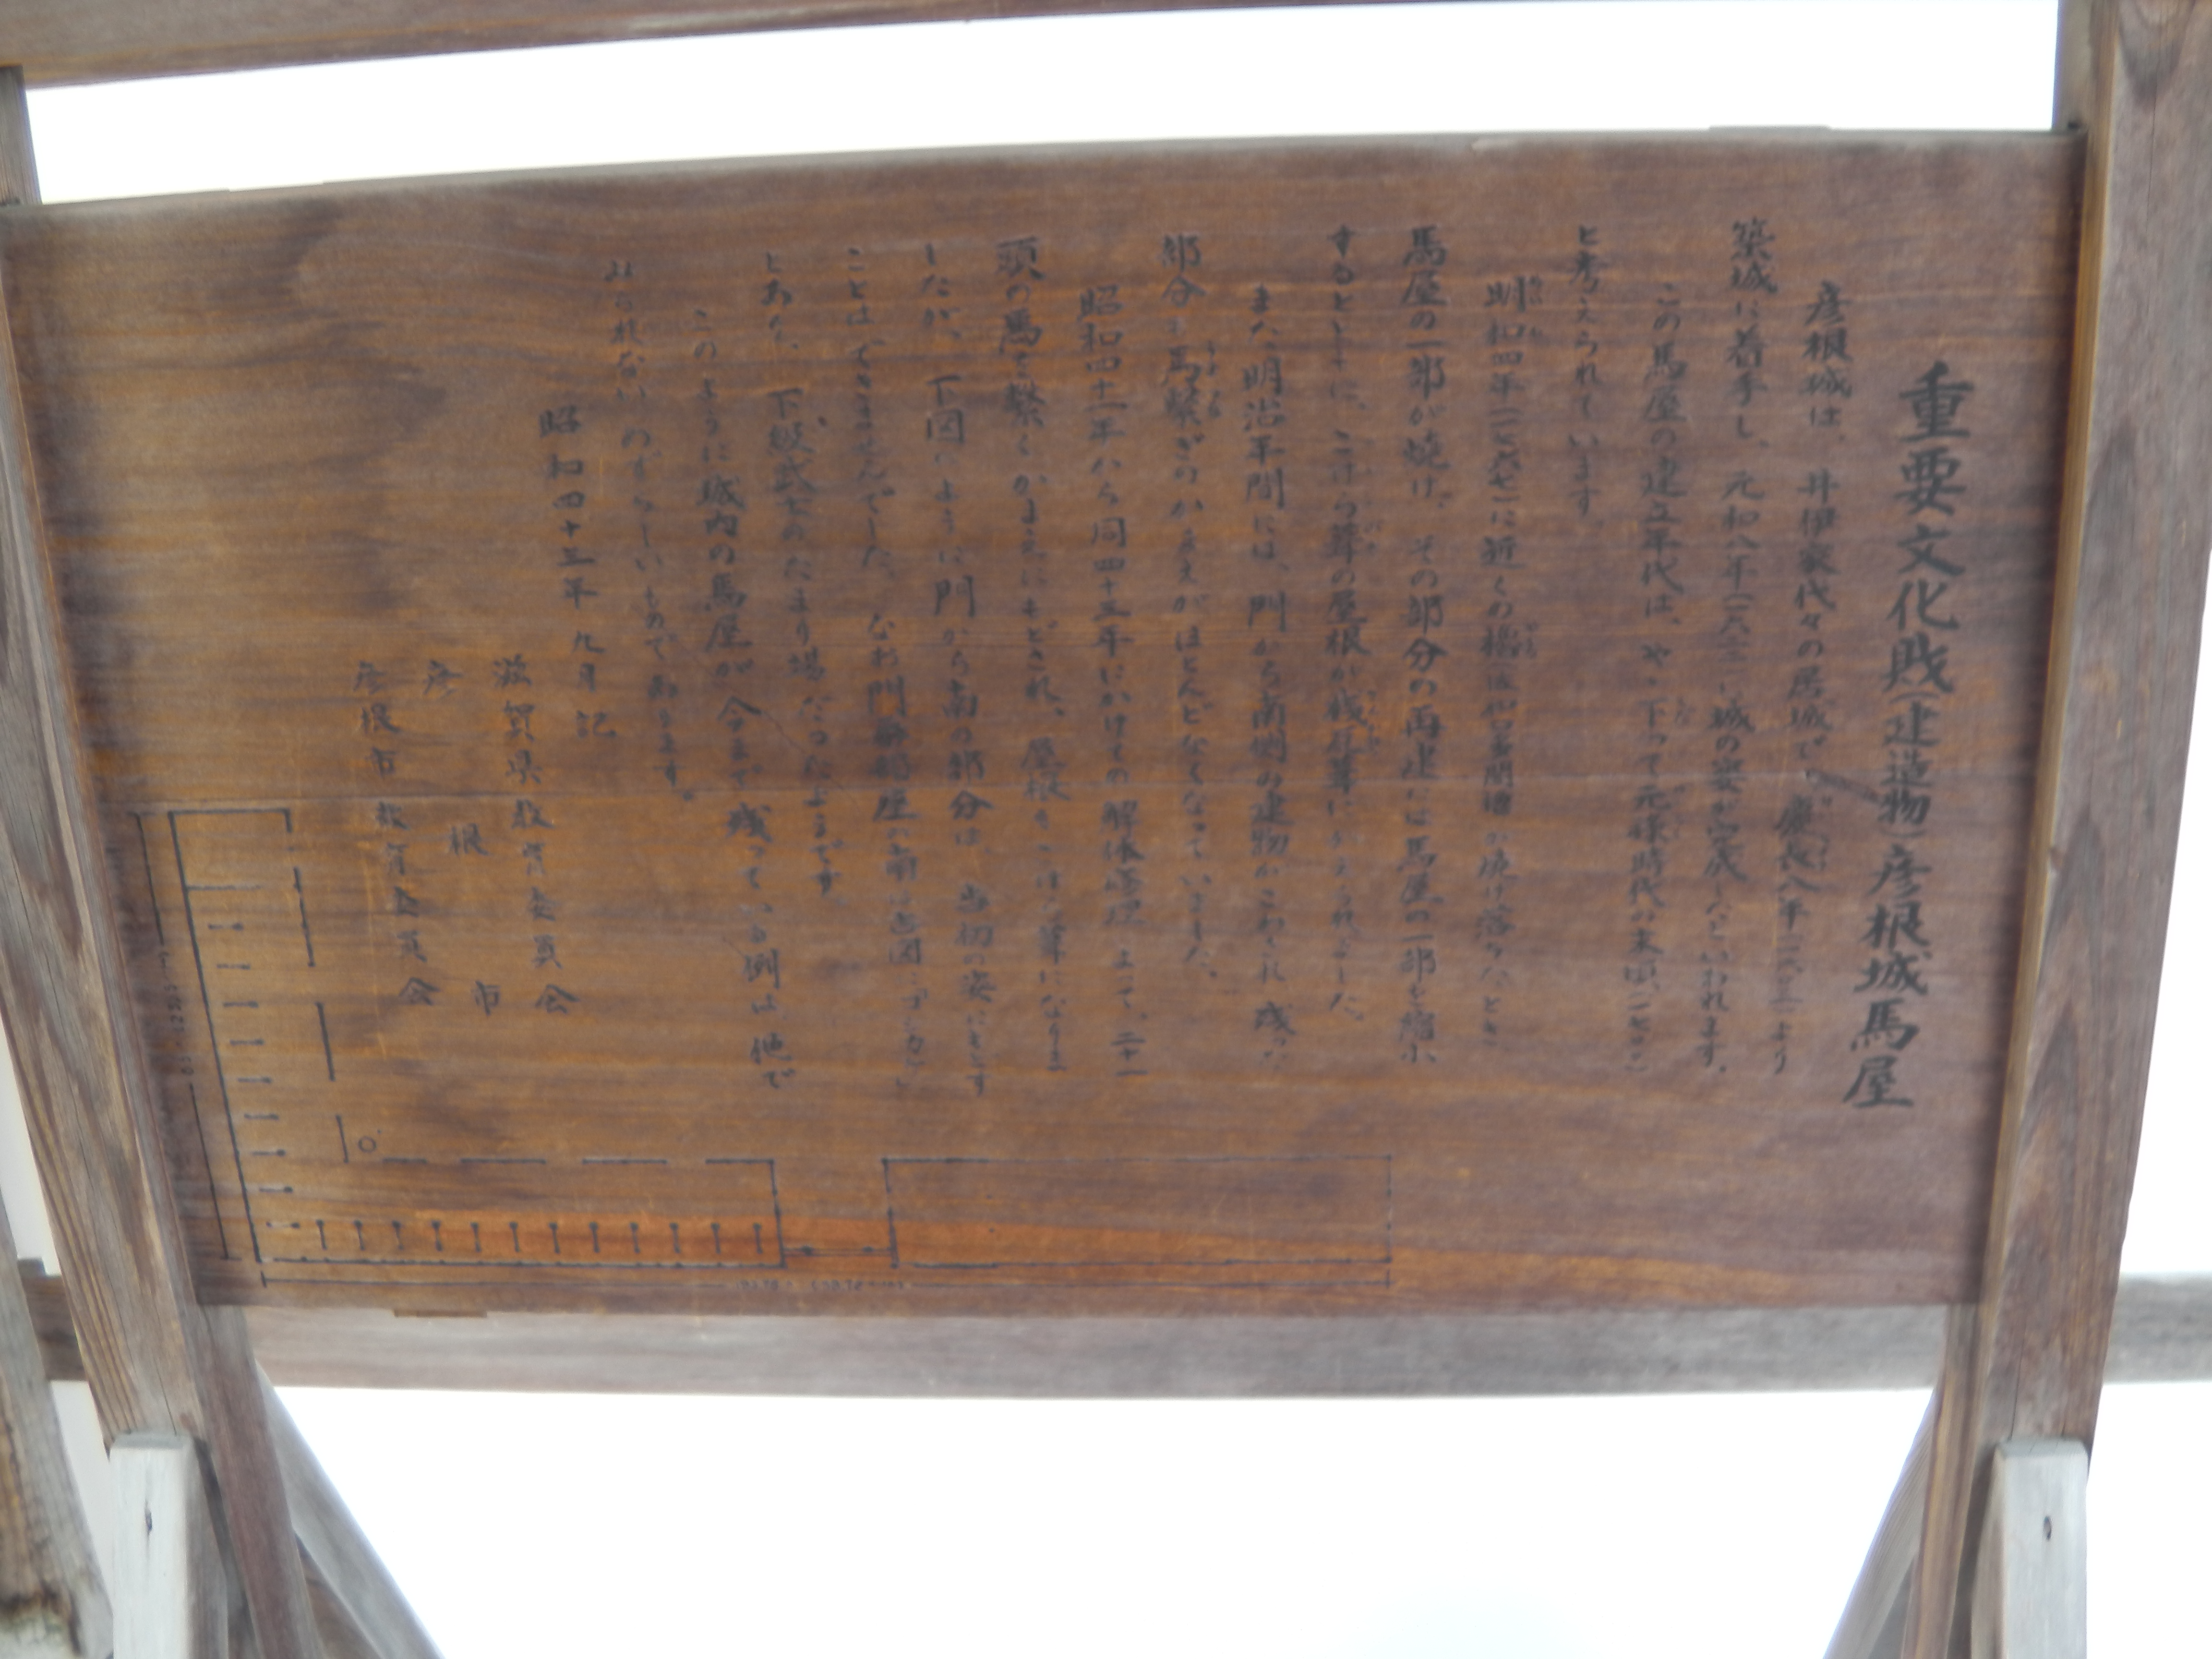 重要文化財(建造物)彦根城馬屋
彦根城は、井伊家代々の居城で、慶長八年(一六〇三)より
築城に着手し、元和八年(一六二二)城の姿が完成したといわれます。
この馬屋の建立年代は、やゝ下って元禄時代の末頃(一七〇〇)
と考えられています
明和四年(一七六七)に近くの櫓(佐和口多聞櫓)が焼け落ちたとき
馬屋の一部が焼け、その部分の再建には馬屋の一部を縮小
するとともに、こけら葺の屋根が桟瓦葺にかえられました。
また明治年間には、門から南側の建物がこわされ残った
部分も馬繋ぎのかまえがほとんどなくなっていました。
昭和四十一年から同四十三年にかけての解体修理によって、二十一
頭の馬を繋ぐかまえにもどされ、屋根もこけら葺になりま
したが、下図のように門から南の部分は、当初の姿にもどす
ことはできませんでした。なお門
とあり、下級武士のたまり場だったようです。
このように城内の馬屋が今まで残っている例は、他で
みられないめずらしいものであります。
昭和四十三年九月記
滋賀県教育委員会
彦根市
彦根市教育委員会